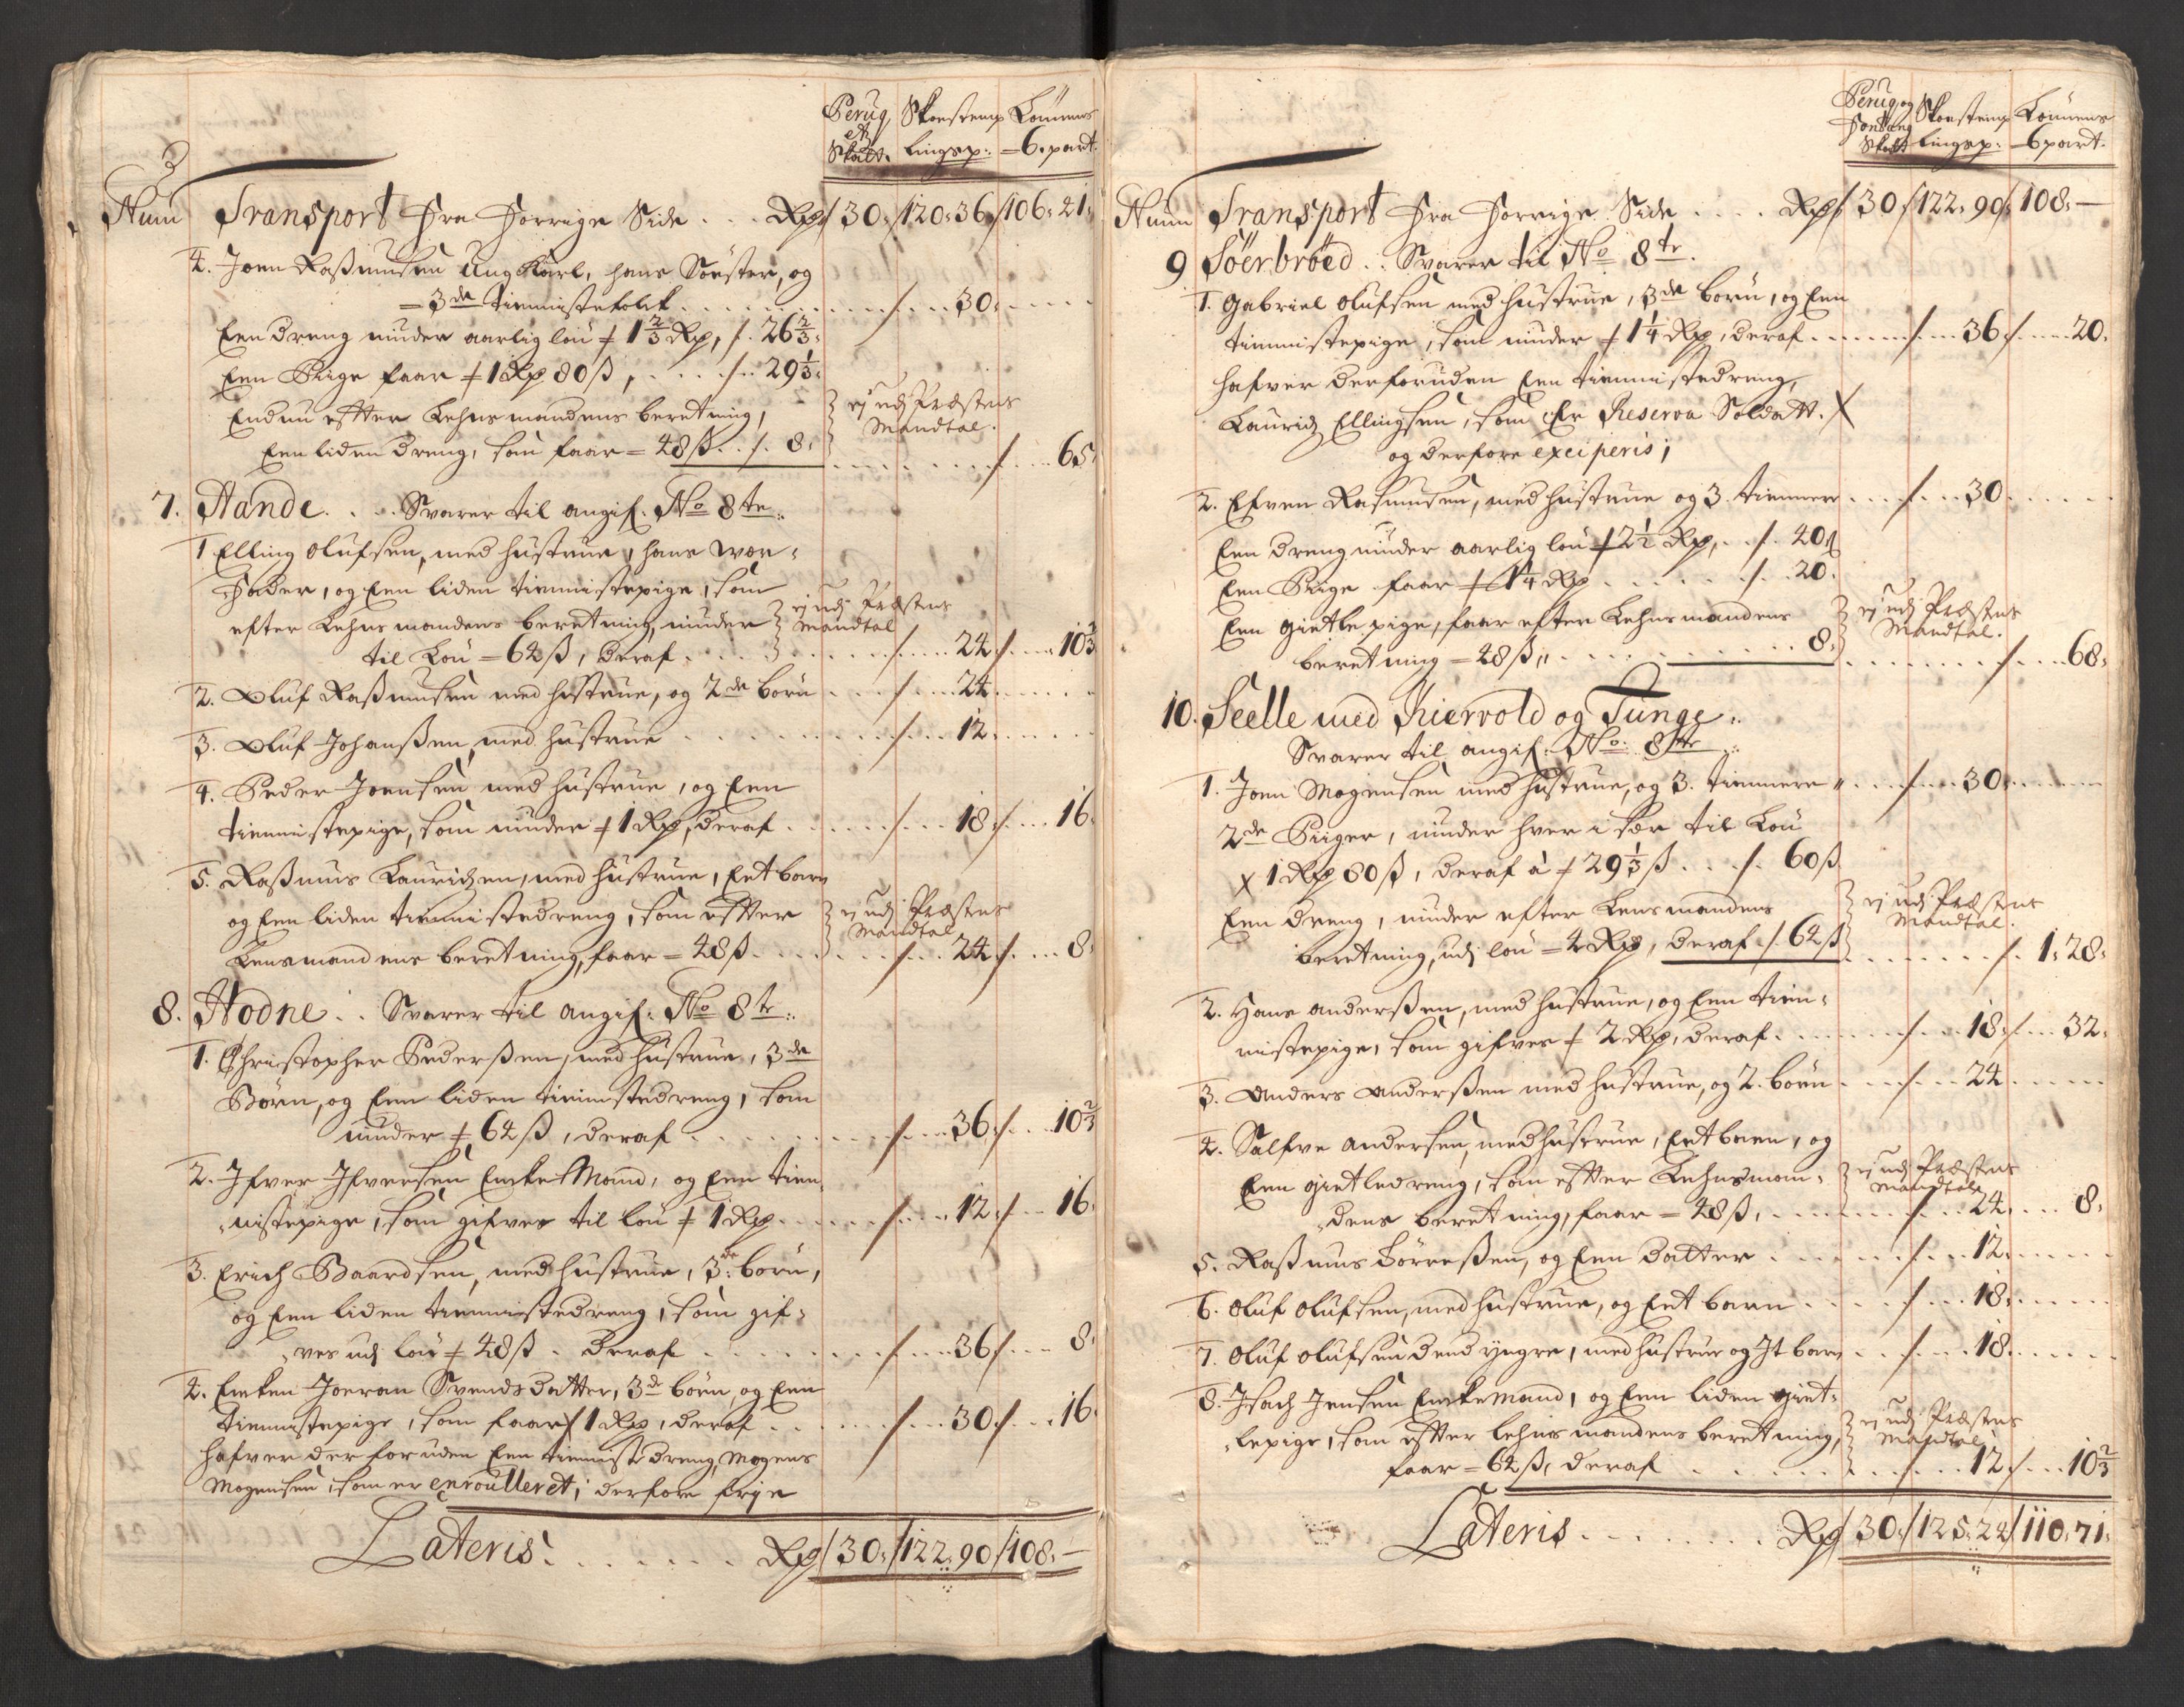 Peruq Skorstens Lønnens
Skatt. lings p: 6. part.
3
Num Transport fra Forrige Side . . . Rdr 30: 120: 36 106: 21:
4. Joen Raßmusen ung Karl, hans Søster, og
3de tiennistefolck . . . 30:
Een dreng niuder aarlig løn 1 2/3 Rdr, 26 2/3:
Een Piige faar 1 Rdr 80 ß, . . . 29 1/3:
Endnu efter Lehnsmandens beretning, ej udj Præstens
Een liden dreng, som faar = 48 ß . . 8: Mandtal.
65
7. Hande. . . . Svarer til angif. No 8te
1 Elling Olufsen, med hustrue, hans Vær-
Fader, og Een liden tiennistepige, som
efter Lehnsmandens beretning, niuder ej udj Præstens Mandtal
til Løn = 64 ß, deraf . . . 24 . . . 10 2/3
2. Oluf Raßmusen med hustrue, og 2de børn . . . 24 . . .
3. Oluf Johanßen, med hustrue . . . 12 . . .
4. Peder Joensen med hustrue, og Een
tiennistepige, som niuder 1 Rdr, deraf . . . 18 . . . 16
5. Raßmus Lauridzen, med hustrue, Eet barn
og Een liden tiennistedreng, som efter ej udj Præstens
Lensmandens beretning, faar = 48 ß . . . Mandtal 24 . . . 8
8. Hodne . . Svarer til angif: No 8te
1. Christopher Pederßen, med hustrue, 3de
Børn, og Een liden tiennistedreng, som
niuder 64 ß, deraf . . . 36 . . . 10 2/3
2. Ifver Ifversen Encke Mand, og Een tien-
nistepige, som gifves til løn 1 Rdr . . . 12 . . . 16
3. Erich Baardsen, med hustrue, 3de børn,
og Een liden tiennistedreng, som gif-
ves udj løn 48 ß. deraf . . . 36 . . . 8
4. Encken Joeran Svends datter, 3de børn, og Een
tiennistepige, som faar 1 Rdr, deraf . . . 30 . . . 16
hafver der foruden Een tienniste dreng, Mogens
Mogensen, som er enroulleret; derfore frje
Lateris . . . Rdr 30: 122: 90 108: —
Peruq og Skorstens Lønnens
Fontang Skatt lings p: 6 part.
Num Transport fra Forrige Side . . . Rdr 30: 122: 90 108: —
9 Söerbröed . . Svarer til No 8te.
1. Gabriel Olufsen med hustrue, 3de børn, og Een
tiennistepige, som niuder 1 1/4 Rdr, deraf . . . 36 . . . 20.
hafver der foruden Een tiennistedreng,
Lauridz Ellingsen, som Er Reserva Soldatt. X
og derfore exciperis;
2. Efven Rasmusen, med hustrue og 3. tiennere . . . 30 . . .
Een dreng niuder aarlig løn 2 1/2 Rdr, . . 40 ß
Een Piige faar 1 1/4 Rdr . . . 20.
Een gietle pige, faar efter Lehnsmandens ej udj Præstens
beretning = 48 ß, . . . 8: Mandtal.
68:
10. Seelle med Kiervold og Tunge:
Svarer til angif: No: 8te
1. Joen Mogensen med hustrue, og 3. tiennere . . . 30 . . .
2de Piiger, niuder hver i sær til Løn
1 Rdr 80 ß, deraf à 29 1/3 ß . . . 60 ß
Een dreng, niuder efter Lensmandens ej udj Præstens
beretning, udj løn = 4 Rdr, deraf 64 ß Mandtal.
1: 28:
2. Hans Anderßen, med hustrue, og Een tien-
nistepige, som gifves 2 Rdr, deraf . . . 18 . . . 32:
3. Anders Anderßen med hustrue, og 2. børn . . . 24 . . .
4. Salfve Andersen, med hustrue, Eet barn, og
Een gietledreng, som efter Lehnsman- ej udj Præstens
dens beretning, faar = 48 ß, . . . Mandtal 24 . . . 8:
5. Raßmus Törreßen, og Een datter . . . 12 . . .
6. Oluf Olufsen, med hustrue, og Eet barn . . . 18 . . .
7. Oluf Olufsen dend yngre, med hustrue og It barn . . . 18 . . .
8. Isach Jensen Enckemand, og Een liden giet-
lepige, som efter lehnsmandens beretning, ej udj Præstens Mandtal
faar = 64 ß, deraf . . . 12 . . . 10 2/3
Lateris . . . Rdr 30: 125: 24 110: 71: